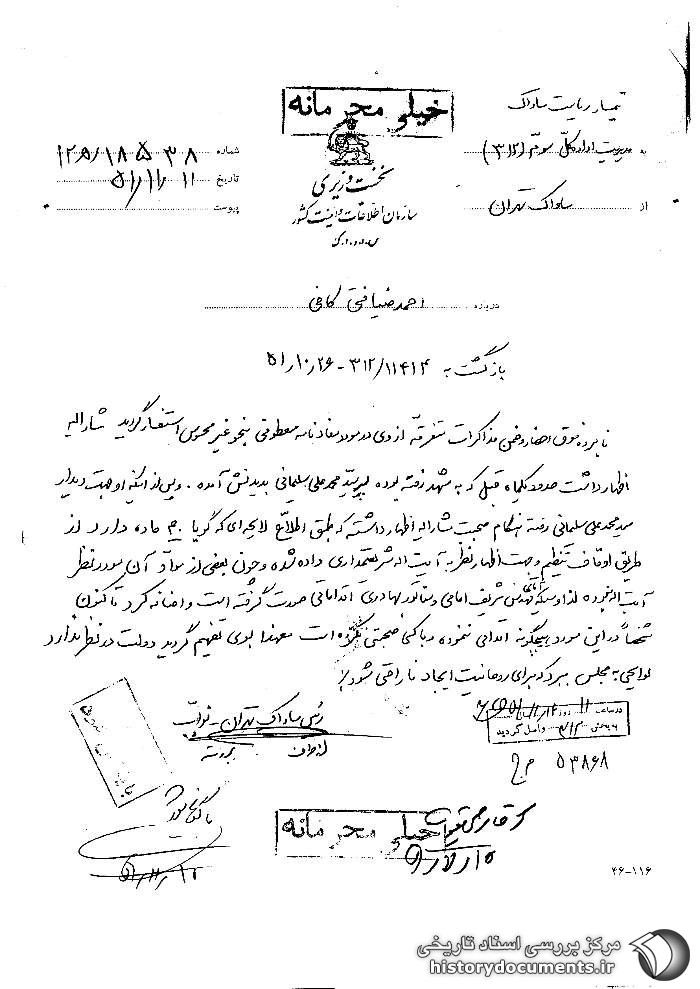 خیلی محرمانه
تیمسار ریاست ساواک
به مدیریت اداره کل سوم (۳۱۲)
از ساواک تهران
نخست وزیری
سازمان اطلاعات و امنیت کشور
س.ا.و.ا.ک
شماره ۱۲۵/۱۸۵۳۸
تاریخ ۵۱/۱۱/۱۱
پیوست
درباره احمد ضیافتی کافی
بازگشت به ۳۱۲/۱۱۴۱۴ - ۵۱/۱۰/۲۶
نامبرده فوق احضار و ضمن مذاکرات متفرقه از وی در مورد مفاد نامه معطوفی بنحو غیر محسوس استفسار گردید مشارالیه
اظهار داشت حدود یکماه قبل که به مشهد رفته بوده پسر سید محمد علی سلیمانی بدیدنش آمده . و پس از اینکه او جهت دیدار
سید محمد علی سلیمانی رفته هنگام صحبت مشارالیه اظهار داشته که طبق اطلاع لایحه‌ای که گویا ماده دارد از
طریق اوقاف تنظیم و جهت اظهار نظر به آیت اله شریعتمداری داده شده و چون بعضی از مواد آن مورد نظر
آیت اله نبوده لذا وسیله آقایان مهندس شریف امامی و سناتور بهادری اقداماتی صورت گرفته است و اضافه کرد تا کنون
شخصاً در این مورد هیچگونه اقدامی ننموده و با کسی صحبتی نکرده است معهذا بوی تفهیم گردید دولت در نظر ندارد
لوایحی به مجلس ببرد که برای روحانیت ایجاد ناراحتی شود.
رئیس ساواک تهران - نواب
از طرف
در ساعت ۱۱ روز
به بخش ۳۱۲ واصل گردید
۵۳۸۶۸
خیلی محرمانه
۴۶-۱۱۶
مرکز بررسی اسناد تاریخی
historydocuments.ir